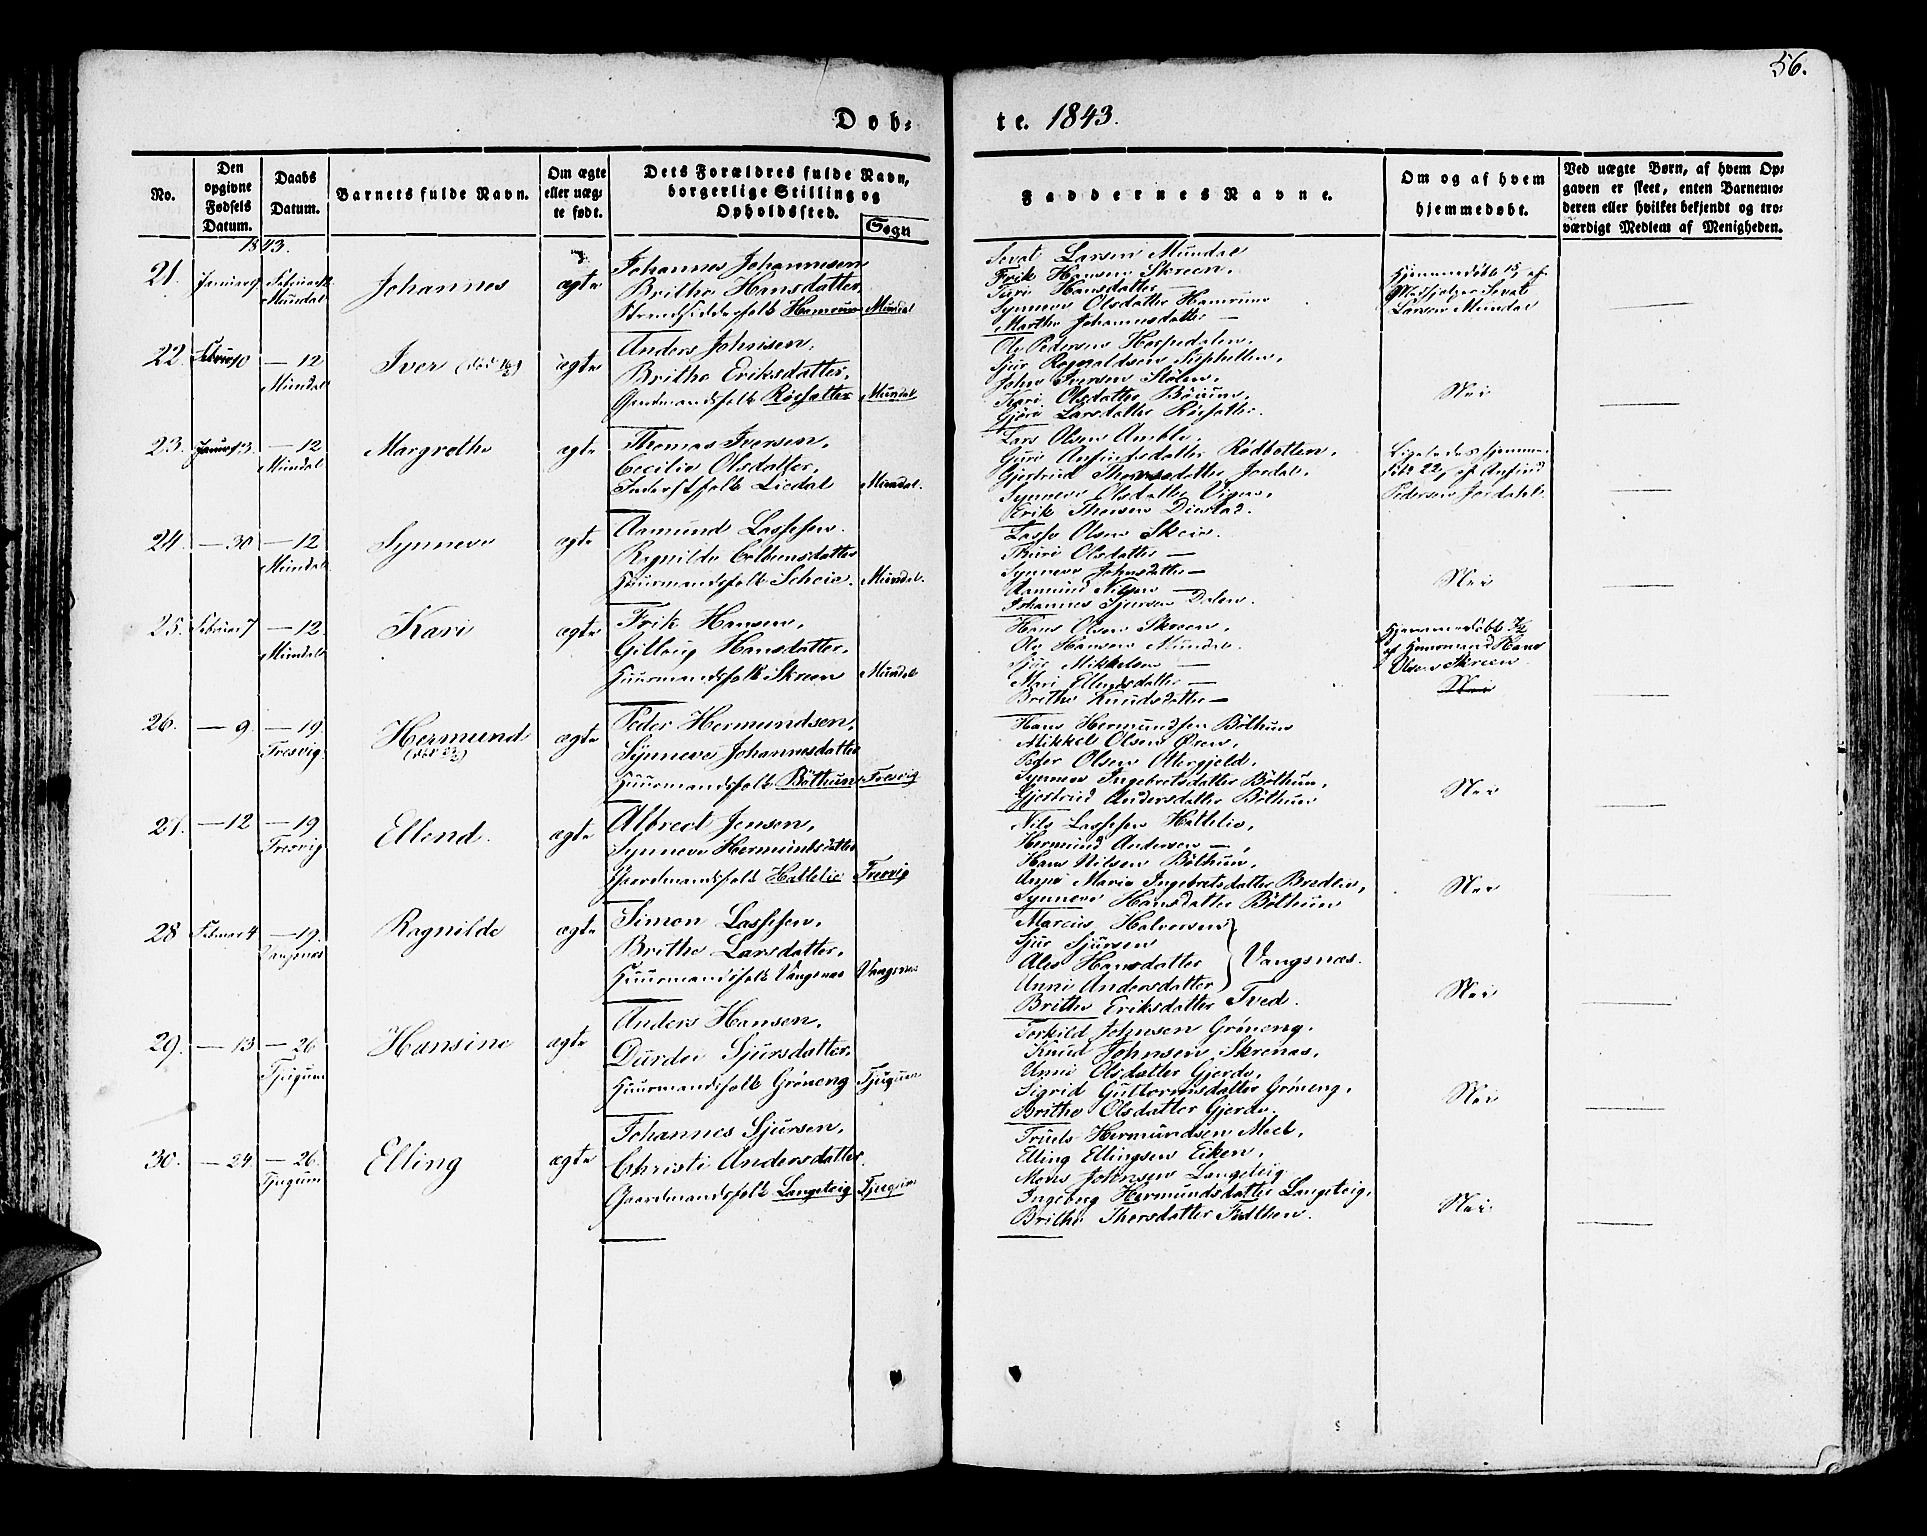 56.
Døb-
te. 1843.
No.
Den opgivne Fødsels Datum.
Daabs Datum.
Barnets fulde Navn.
Om ægte eller uægte født.
Dets Forældres fulde Navn, borgerlige Stilling og Opholdssted.
Sogn
Faddernes Navne.
Om og af hvem hjemmedøbt.
Ved uægte Børn, af hvem Opgaven er skeet, enten Barnemoderen eller hvilket bekjendt og troværdigt Medlem af Menigheden.
1843.
21. Januar 9 Februar
Mundal
Johannes
ægte
Johannes Johannesen
Brithe Hansdatter
Hamrum Mundal
Sevat Larsen Mundal
Erik Hansen Skreen,
Turi Hansdatter —
Synneve Olsdatter Hamrum
Marthe Johannesdatter —
Hjemmedøbt 15/1 af
Sevat
Larsen Mundal
22. Februar 10 — 12
Mundal
Iver
ægte
Anders Johnsen,
Brithe Eriksdatter,
Gaardmandsfolk Røesatter Mundal
Ole Pedersen Herpedalen,
Sjur Rognaldsen
John Iversen Stølen,
Kari Olsdatter Bøium,
Gjøri Larsdatter Røesatter.
Nei
23. Januar 13. — 12
Mundal
Margrethe
ægte
Thomas Iversen,
Cecilie Olsdatter,
Inderstfolk Liedal Mundal.
Lars Olsen Amble,
Guri Anfindsdatter Rødbotten,
Gjertrud Thomasdatter Jordal,
Synneve Olsdatter Vigum,
Erik Thorsen
Ligeledes hjemmedøbt 22/1 af Anfind
Pedersen Jordahl.
24. — 30 — 12
Mundal
Synneve
ægte
Aamund Lassesen.
Ragnilde
Huusmandsfolk Scheie. Mundal.
Lasse Olsen Skeie.
Thuri Olsdatter —
Synneve Johnsdatter —
Aamund Nilsen —
Johannes Sjursen Dalen.
Nei
25. Februar 7 — 12.
Mundal
Kari
ægte
Erik Hansen,
Gitlaug Hansdatter,
Huusmandsfolk Skreen Mundal
Hans Olsen Skreen,
Ole Hansen Mundal.
Mikkelsen —
Mari Ellendsdatter —
Brithe Knudsdatter —
Hjemmedøbt
af Huusmand Hans
Olsen Skreen.
Nei
26. — 9. — 19.
Fresvig
Hermund
ægte
Peder Hermundsen,
Synneve Johannesdatter
Huusmandsfolk Bøthun Fresvig
Hans Hermundsen Bøthun
Mikkel Olsen Øren,
Peder Olsen Ottergjeld,
Synneve Ingebretsdatter Bøthun,
Gjertrud Andersdatter Bøthun
Nei
27. — 12 — 19
Fresvig
Ellend.
ægte
Albrect Jensen,
Synneve Hermundsdatter
Gaardmandsfolk Hattelie Fresvig
Nils Lassesen Hattelie,
Hermund Andersen —,
Hans Nilsen Bøthun,
Anna Maria Ingebretsdatter Bredlie,
Synneve Hansdatter Bøthun
Nei
28 Februar 4 — 19.
Vangsnæs
Ragnilde
ægte
Simon Lassesen,
Brithe Larsdatter,
Huusmandsfolk Vangsnæs Vangsnæs
Marcus Halvorsen
Sjur Sjursen
Ales Hansdatter
Anni Andersdatter
Vangsnæs.
Brithe Eriksdatter Tved.
Nei
29. — 13 — 26
Tjugum
Hansine
ægte
Anders Hansen,
Durdei Sjursdatter,
Huusmandsfolk Grøneng Tjugum
Torkild Johnsen Grøneng,
Knud Johnsen Skrenæs,
Unni Olsdatter Gjerde,
Sigrid Guttormsdatter Grøneng,
Brithe Olsdatter Gjerde.
Nei
30. — 24 — 26.
Tjugum
Elling
ægte
Johannes Sjursen,
Christi Andersdatter
Gaardmandsfolk Langeteig Tjugum
Truels Hermundsen Meel,
Elling Ellingsen Eiken,
Mons Johnsen Langeteig
Ingeborg Hermundsdatter Langeteig,
Brithe Thorsdatter
Nei.